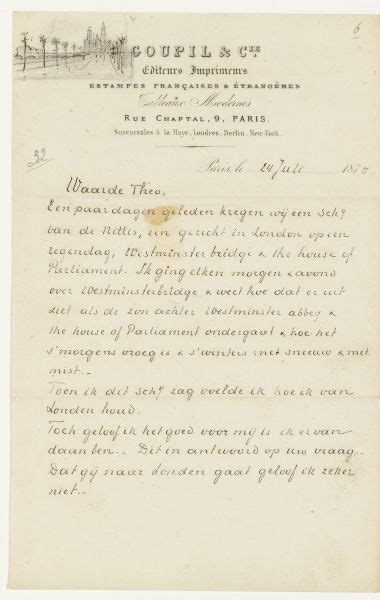 6
GOUPIL & CIE
Editeurs Imprimeurs
ESTAMPES FRANÇAISES & ÉTRANGÈRES
Tableaux Modernes
RUE CHAPTAL, 9, PARIS.
Succursales à la Haye, Londres, Berlin, New-York.
32
Paris, le 24 Juli 1875
Waarde Theo,
Een paar dagen geleden kregen wij een schij
van de Nittis, een gezicht in Londen op een
regendag, Westminster bridge & the house of
Parliament. Ik ging elken morgen & avond
over Westminsterbridge & weet hoe dat er uit
ziet als de zon achter Westminster abbey &
the house of Parliament ondergaat & hoe het
s'morgens vroeg is & s'winters met sneeuw & met
mist..
Toen ik dit schij zag voelde ik hoe ik van
Londen houd.
Toch geloof ik het goed voor mij is ik er van
daan ben.. Dit in antwoord op uw vraag..
Dat gij naar Londen gaat geloof ik zeker
niet..